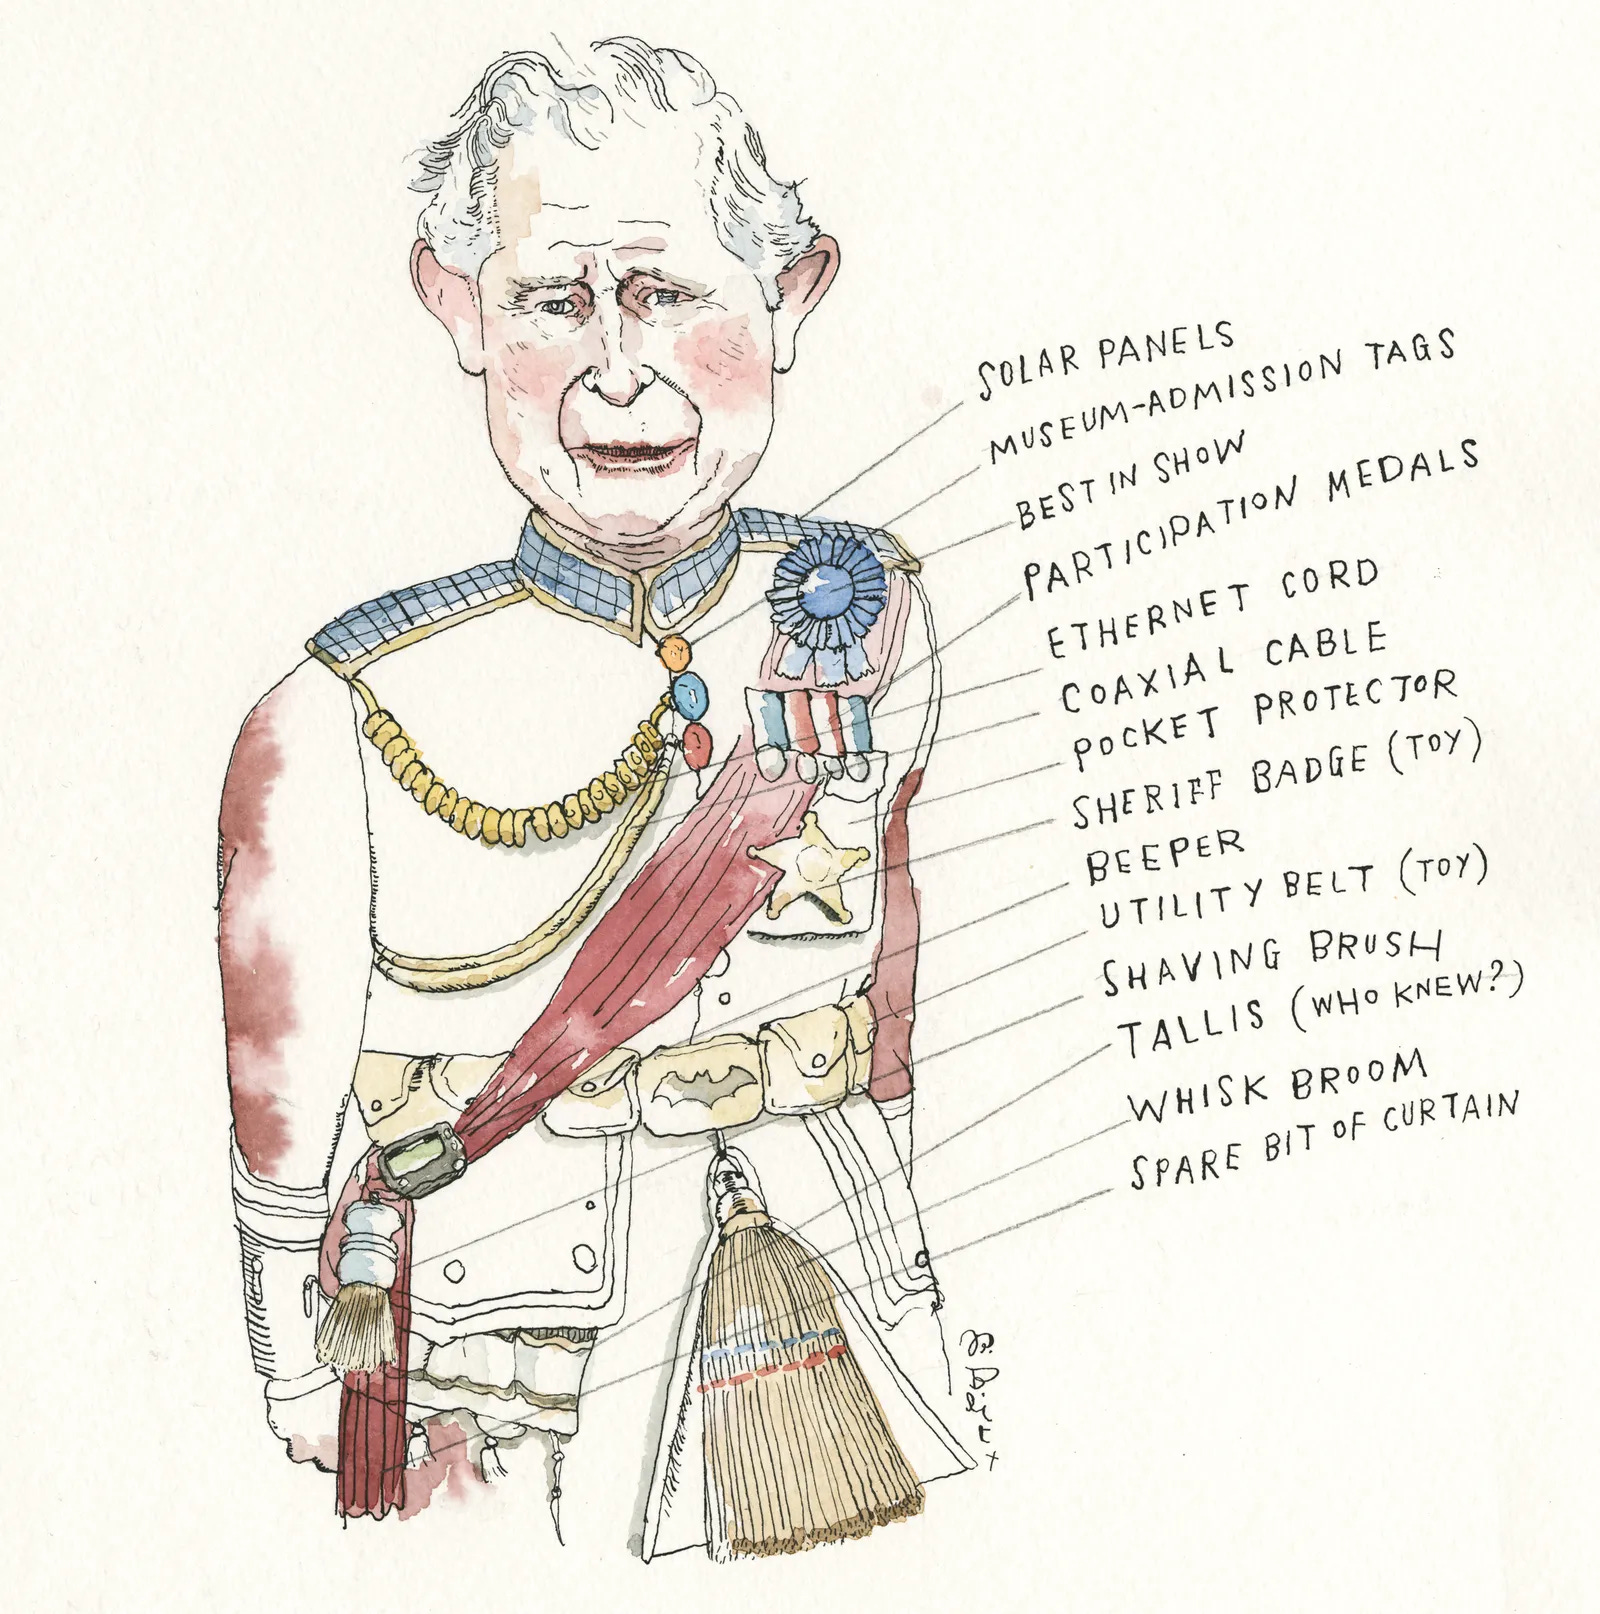 SOLAR PANELS
MUSEUM-ADMISSION TAGS
BEST IN SHOW
PARTICIPATION MEDALS
ETHERNET CORD
COAXIAL CABLE
POCKET PROTECTOR
SHERIFF BADGE (TOY)
BEEPER
UTILITY BELT (TOY)
SHAVING BRUSH
TALLIS (WHO KNEW?)
WHISK BROOM
SPARE BIT OF CURTAIN